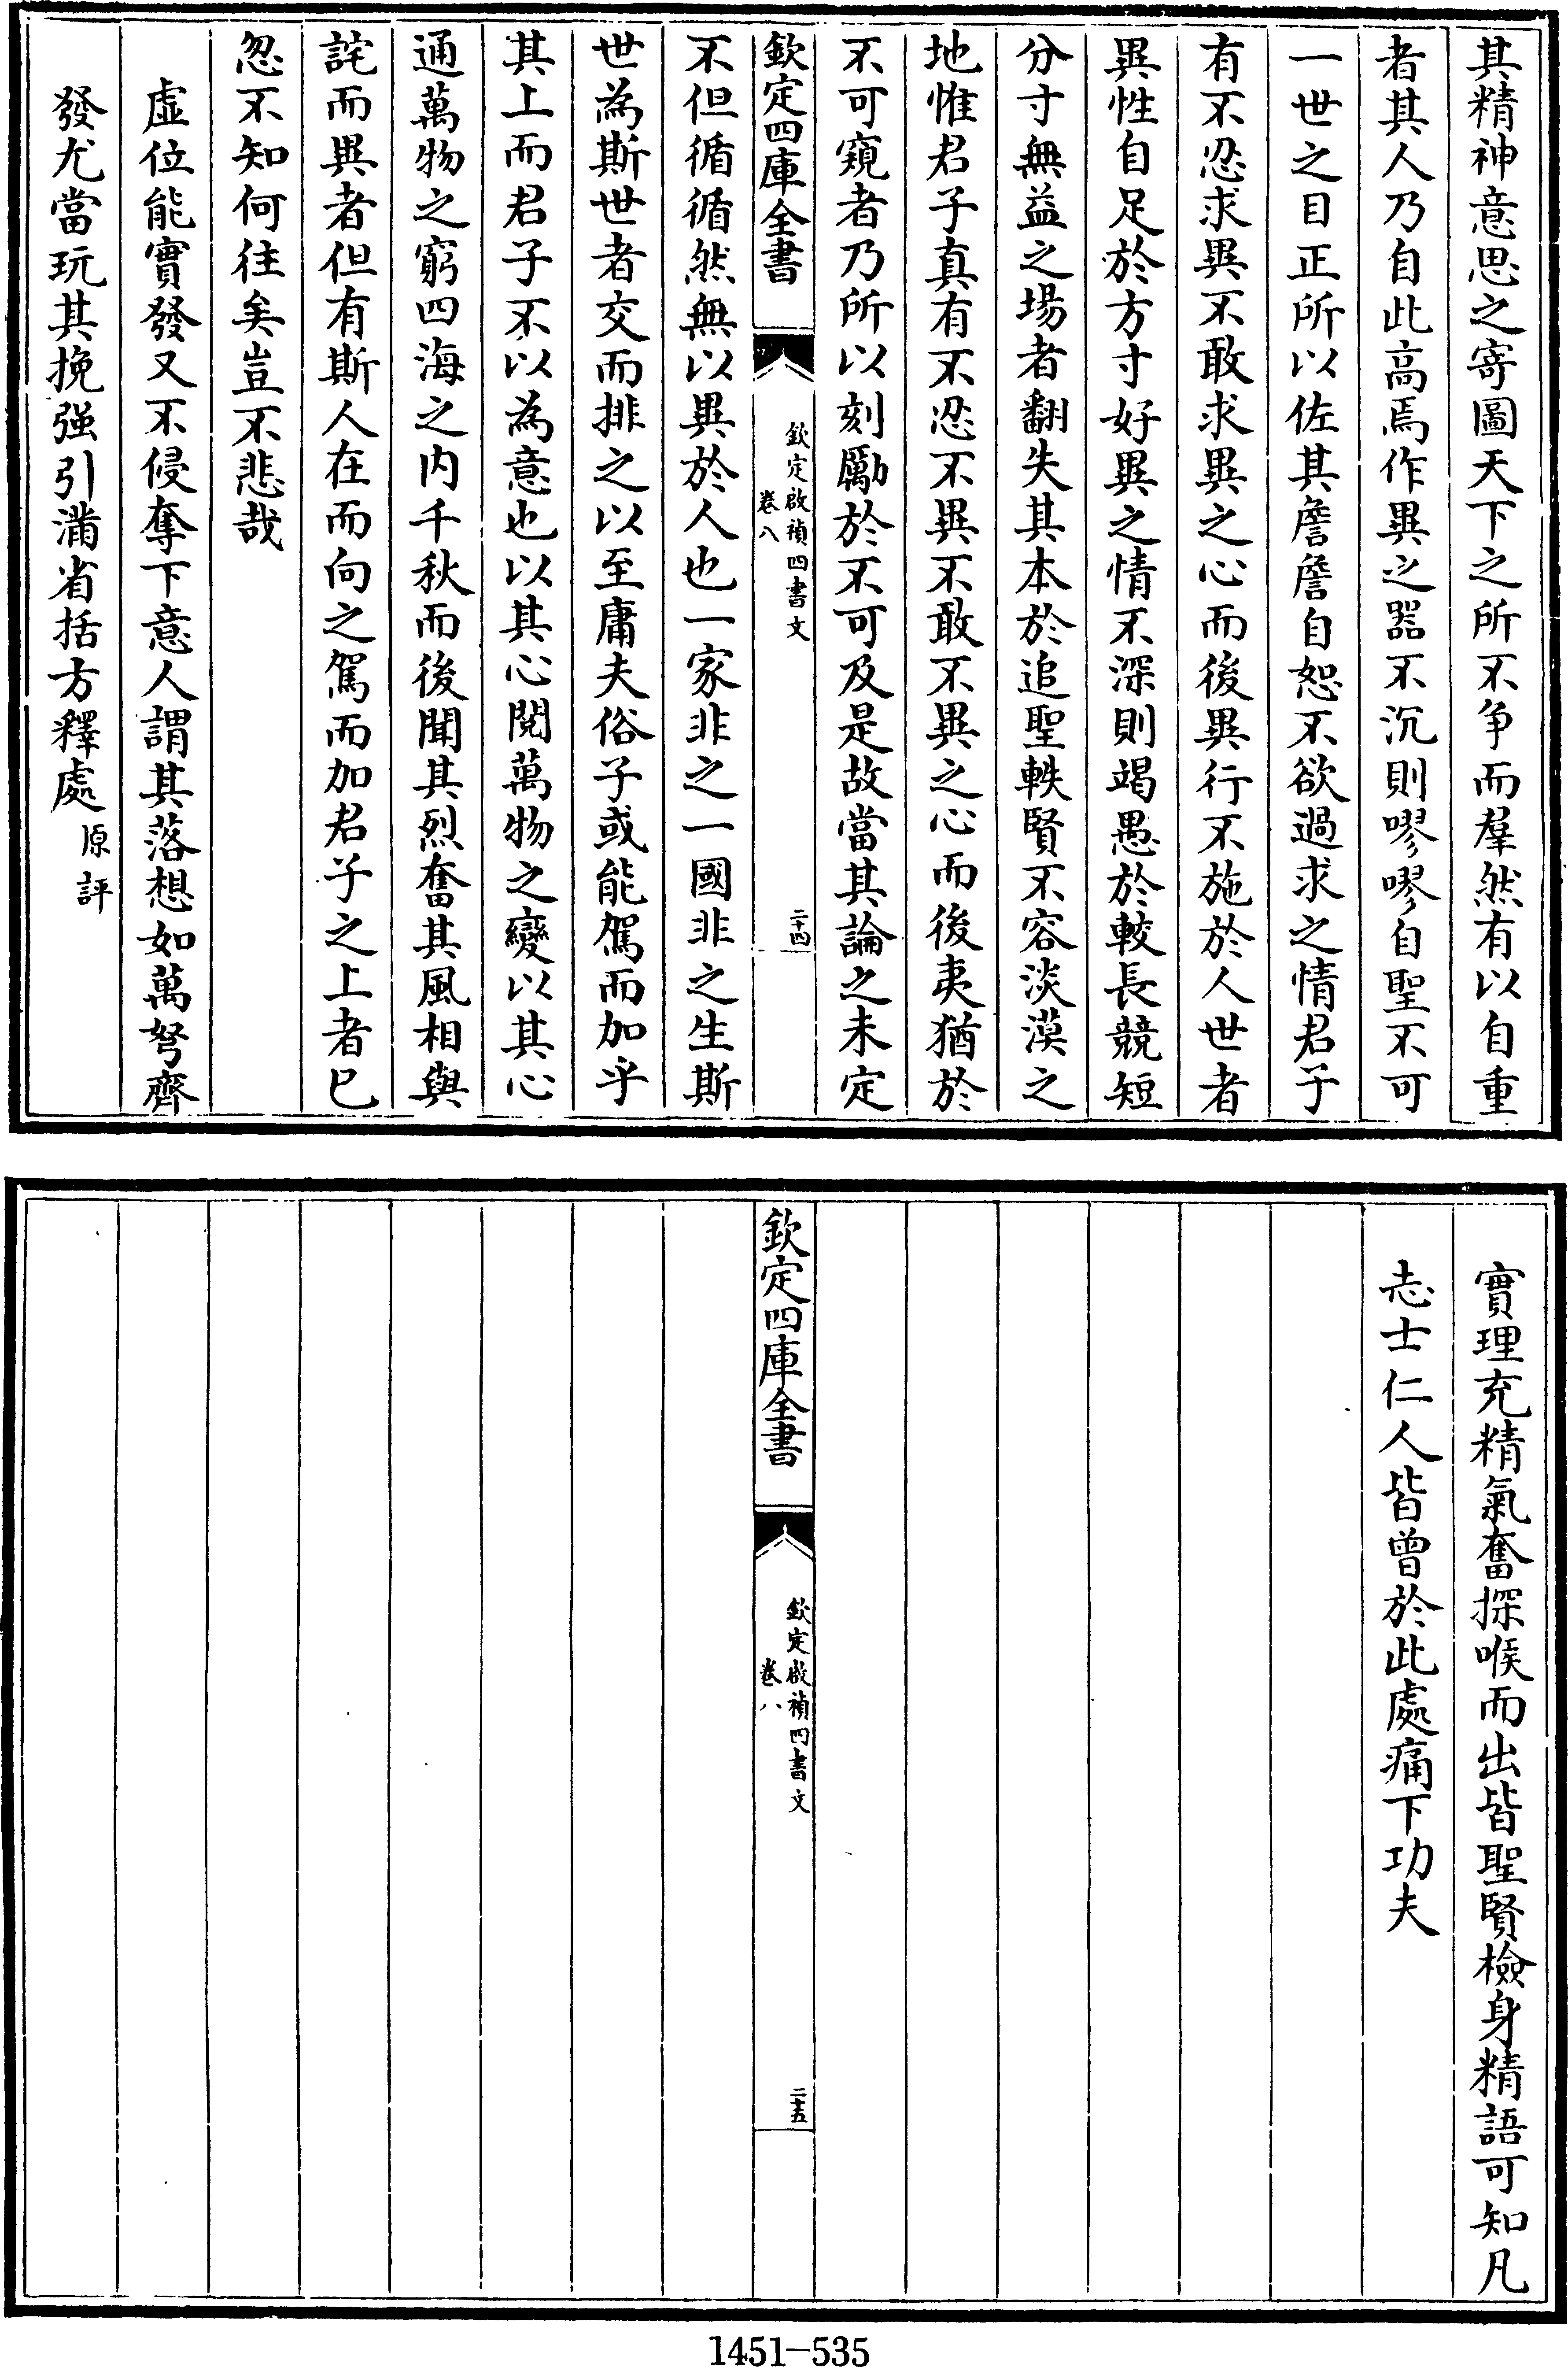 其精神意思之寄圖天下之所不爭而羣然有以自重
者其人乃自此高焉作異之器不沉則嘐嘐自聖不可
一世之目正所以佐其詹詹自恕不欲過求之情君子
有不忍求異不敢求異之心而後異行不施於人世者
異性自足於方寸好異之情不深則竭愚於較長競短
分寸無益之場者翻失其本於追聖軼賢不容淡漠之
地惟君子真有不忍不異不敢不異之心而後夷猶於
不可窺者乃所以刻勵於不可及是故當其論之未定
欽定四庫全書
欽定啟禎四書文
卷八
二十四
不但循循然無以異於人也一家非之一國非之生斯
世為斯世者交而排之以至庸夫俗子或能駕而加乎
其上而君子不以為意也以其心閱萬物之變以其心
通萬物之窮四海之內千秋而後聞其烈奮其風相與
詫而異者但有斯人在而向之駕而加君子之上者已
忽不知何往矣豈不悲哉
虛位能實發又不侵奪下意人謂其落想如萬弩齊
發尤當玩其挽强引滿省括方釋處 原評
實理充精氣奮探喉而出皆聖賢檢身精語可知凡
志士仁人皆曾於此處痛下功夫
欽定四庫全書
欽定啟禎四書文
卷八
二十五
1451-535